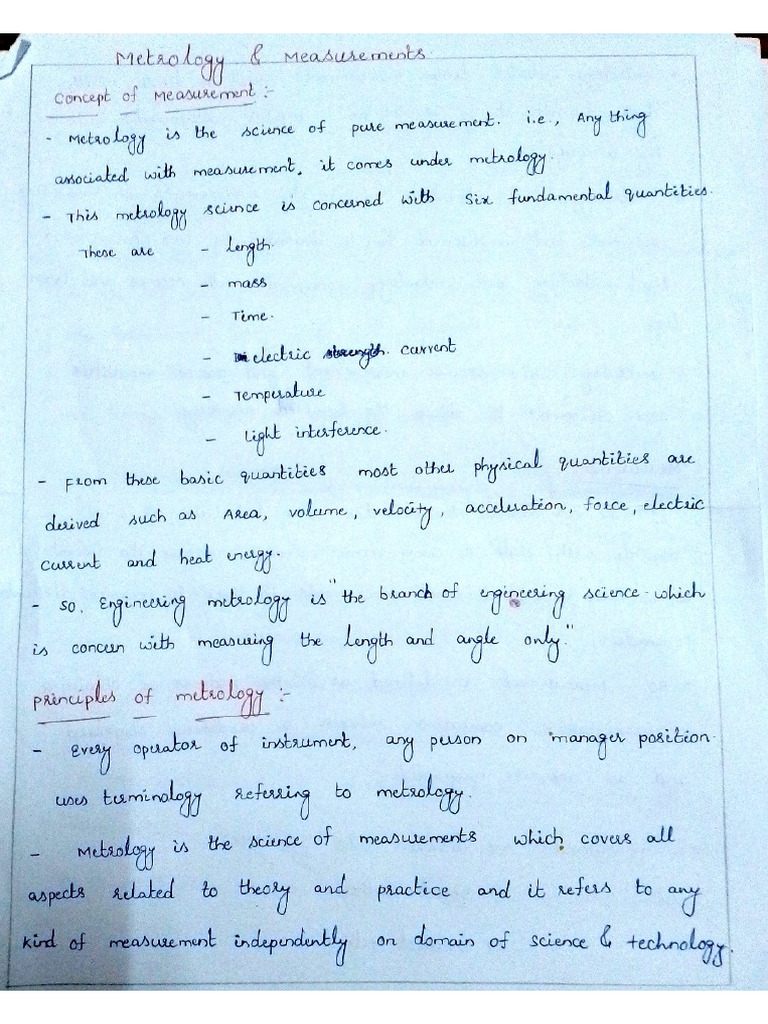 Metrology & Measurements
Concept of Measurement :-
- Metrology is the science of pure measurement. i.e., Any thing
associated with measurement, it comes under metrology.
- This metrology science is concerned with six fundamental quantities.
These are - Length.
- mass
- Time.
- electric strength. current
- Temperature
- Light interference.
- From these basic quantities most other physical quantities are
derived such as Area, volume, velocity, acceleration, force, electric
current and heat energy.
- So, Engineering metrology is "the branch of engineering science which
is concern with measuring the length and angle only."
Principles of metrology :-
- Every operator of instrument, any person on manager position
uses terminology referring to metrology.
- Metrology is the science of measurements which covers all
aspects related to theory and practice and it refers to any
kind of measurement independently on domain of science & technology.